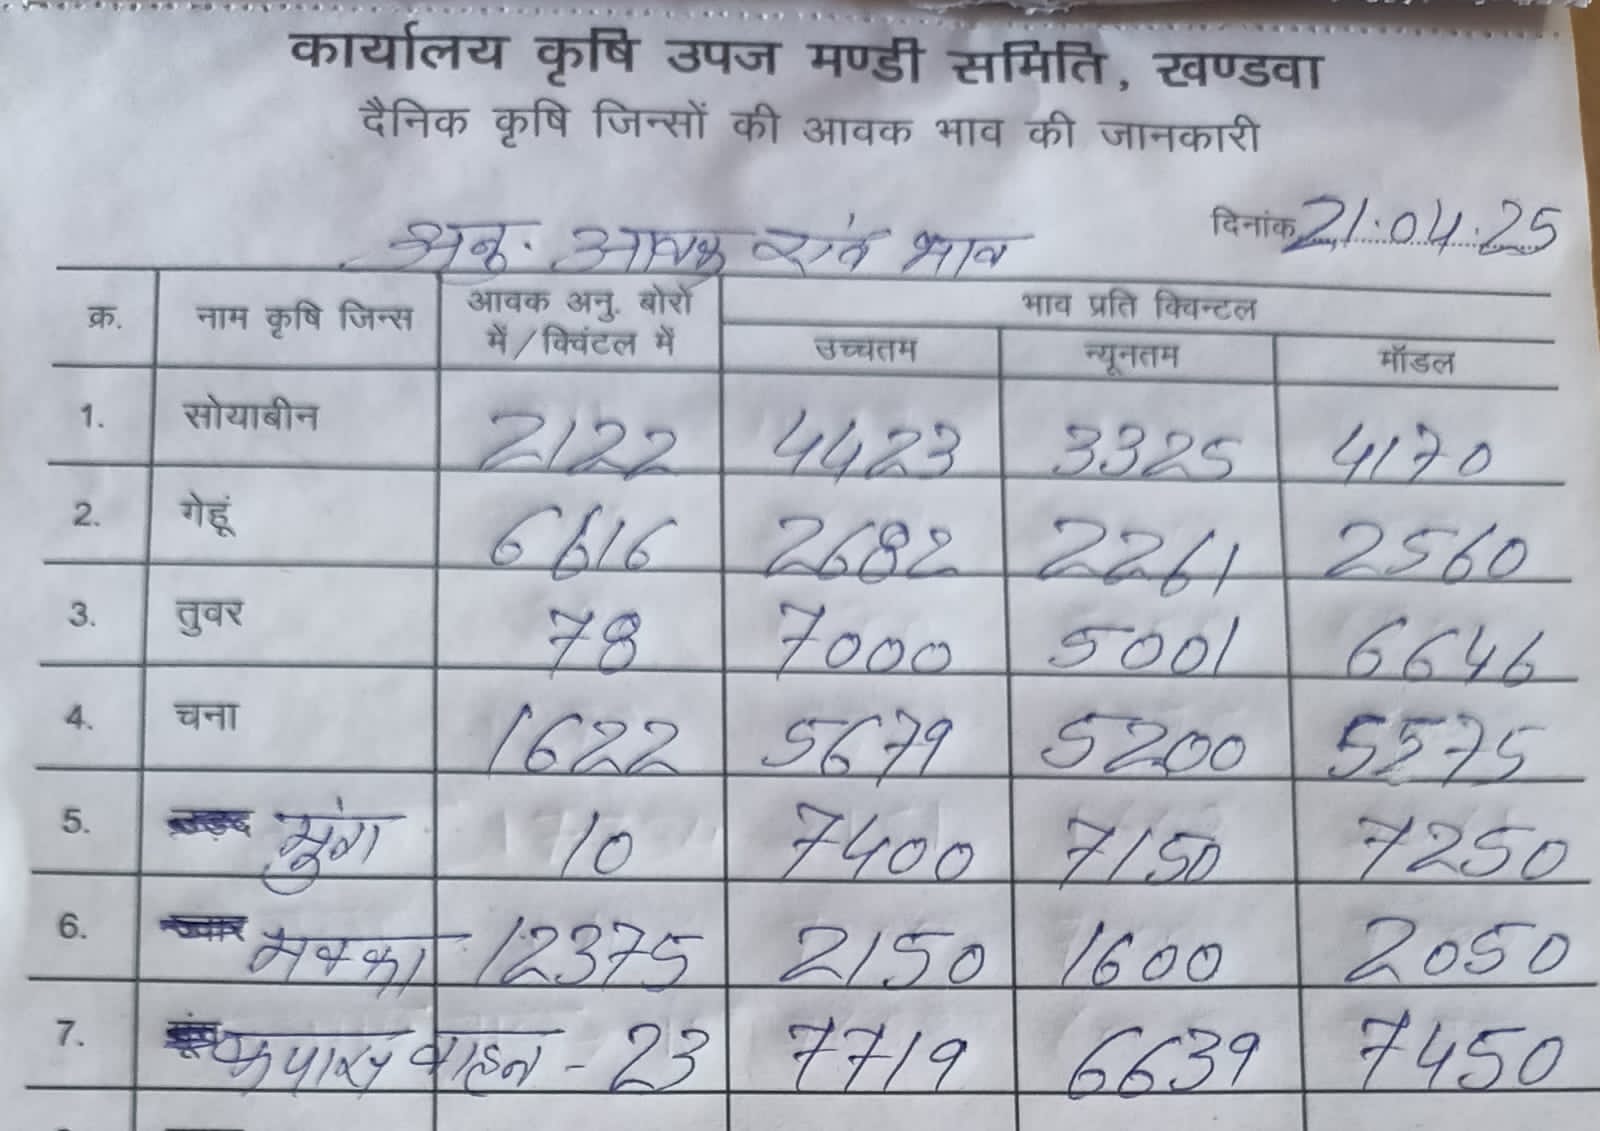 कार्यालय कृषि उपज मण्डी समिति, खण्डवा
दैनिक कृषि जिन्सों की आवक भाव की जानकारी
दिनांक 21.04.25
अनु. आवक एवं भाव
क्र. नाम कृषि जिन्स आवक अनु. बोरों में/क्विंटल में भाव प्रति क्विन्टल
उच्चतम न्यूनतम मॉडल
1. सोयाबीन 2122 4423 3325 4170
2. गेहूं 6616 2682 2261 2560
3. तुवर 78 7000 5001 6646
4. चना 1622 5679 5200 5575
5. मुंग 10 7400 7150 7250
6. मक्का 12375 2150 1600 2050
7. कपास वाहन - 23 7719 6639 7450